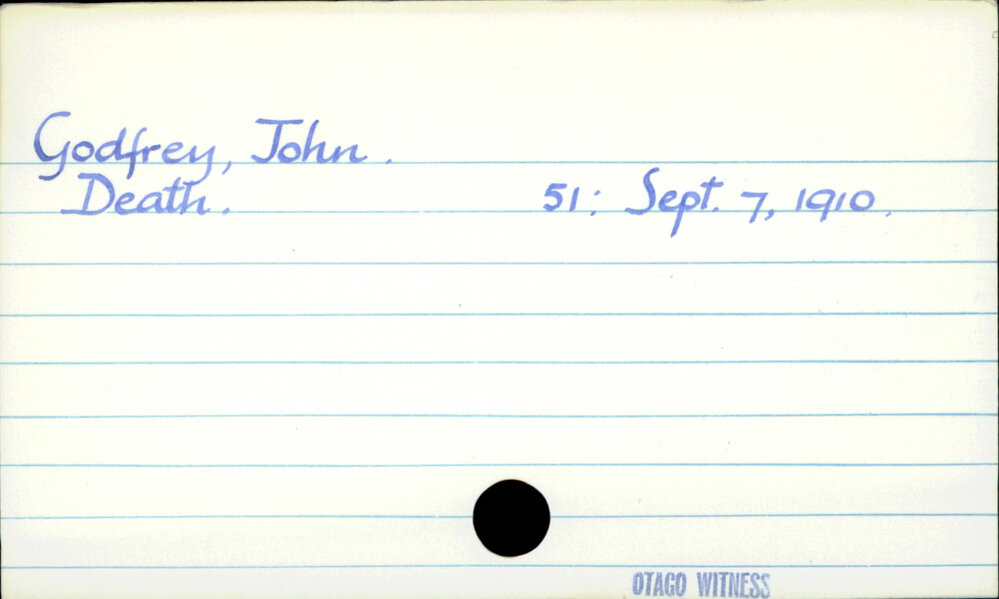 Godfrey, John.
Death. 51: Sept. 7, 1910.
OTAGO WITNESS